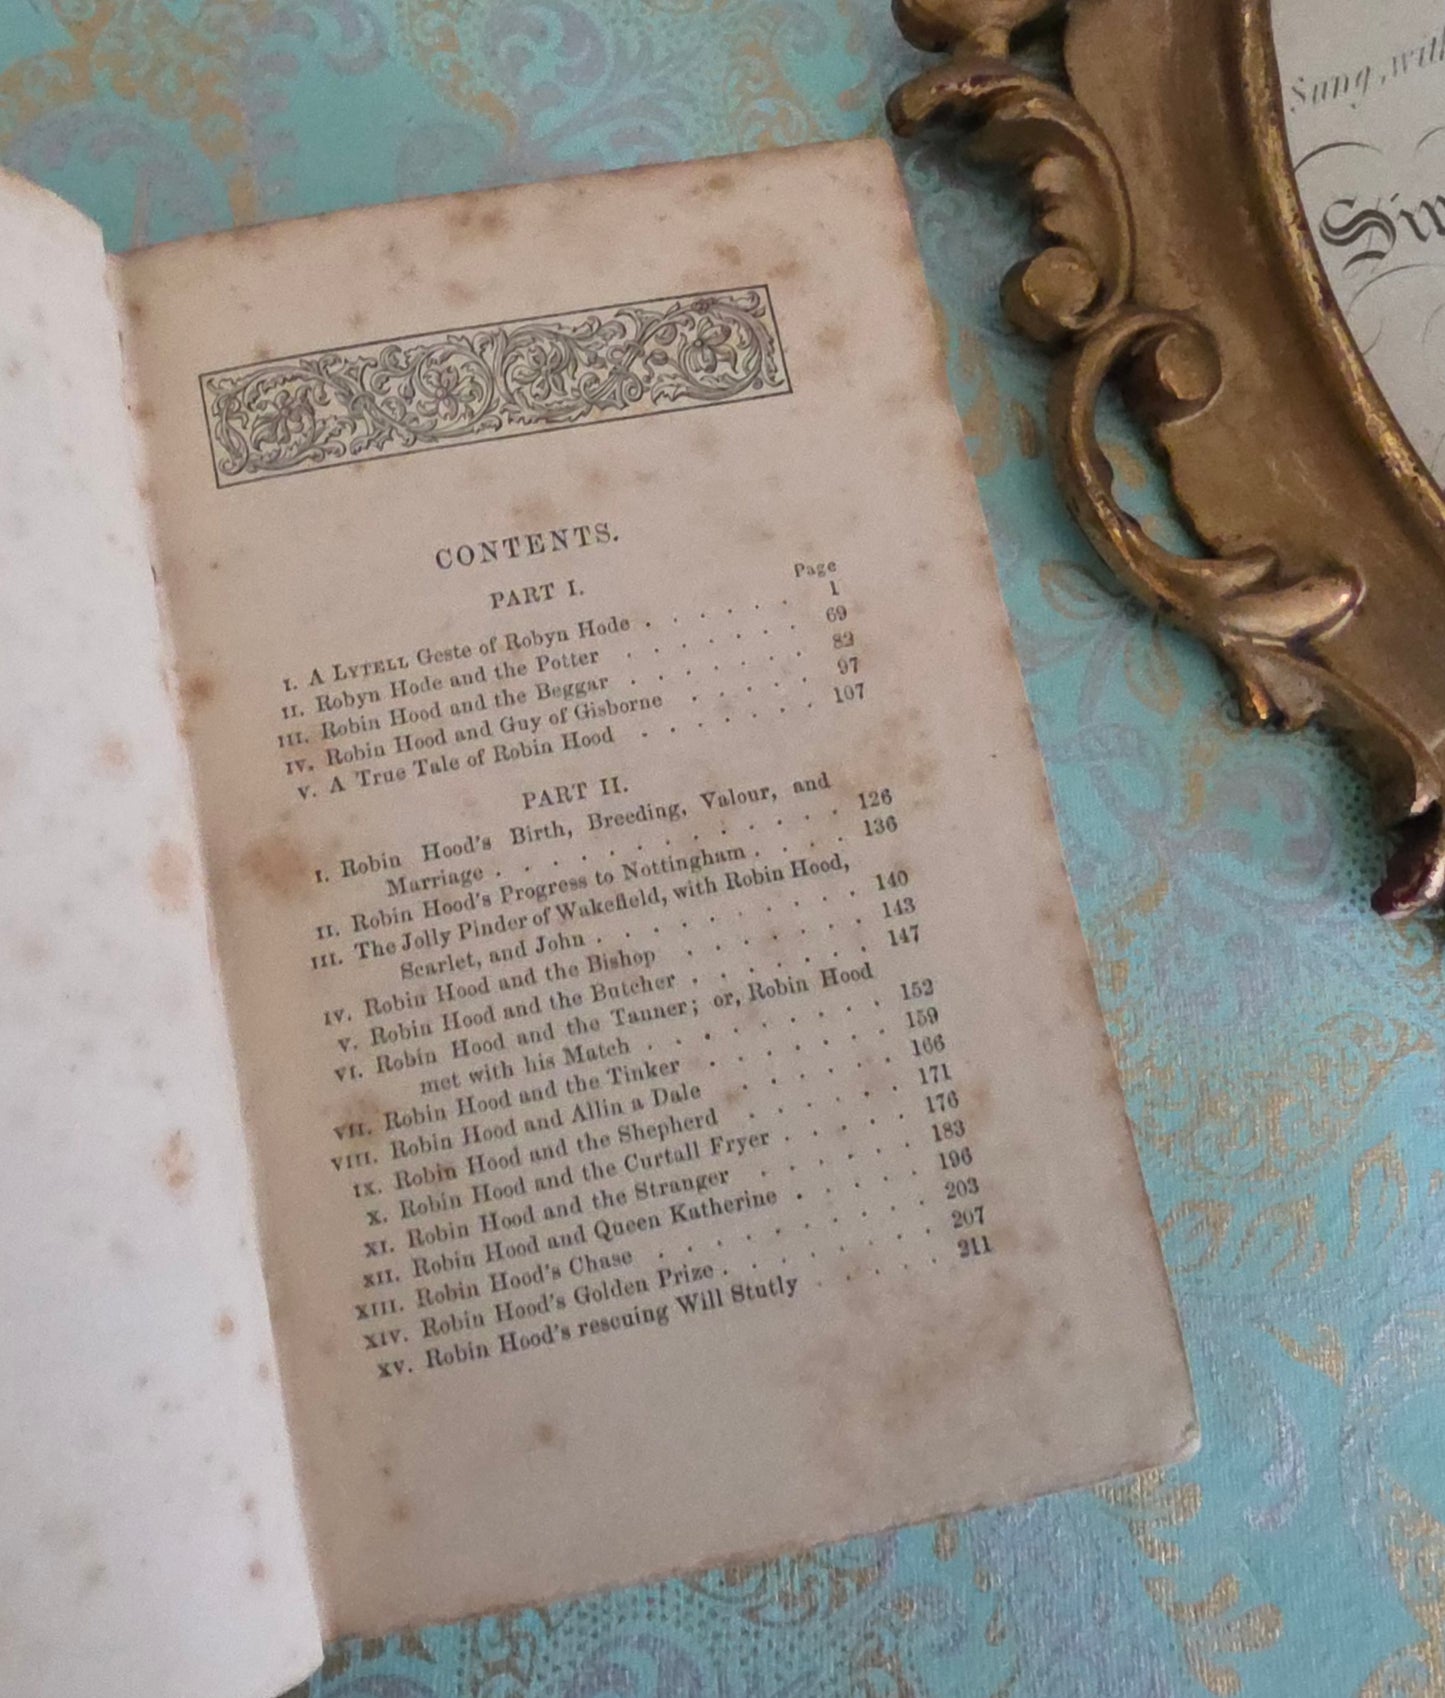 CONTENTS.
PART I.
Page
I. A LYTELL Geste of Robyn Hode . . . . . . 1
II. Robyn Hode and the Potter . . . . . . . 69
III. Robin Hood and the Beggar . . . . . . . 82
IV. Robin Hood and Guy of Gisborne . . . . . 97
V. A True Tale of Robin Hood . . . . . . . 107
PART II.
I. Robin Hood's Birth, Breeding, Valour, and
Marriage . . . . . . . . . . . . . 126
II. Robin Hood's Progress to Nottingham . . . . 136
III. The Jolly Pinder of Wakefield, with Robin Hood,
Scarlet, and John . . . . . . . . . . 140
IV. Robin Hood and the Bishop . . . . . . . 143
V. Robin Hood and the Butcher . . . . . . . 147
VI. Robin Hood and the Tanner; or, Robin Hood
met with his Match . . . . . . . . . 152
VII. Robin Hood and the Tinker . . . . . . . 159
VIII. Robin Hood and Allin a Dale . . . . . . 166
IX. Robin Hood and the Shepherd . . . . . . 171
X. Robin Hood and the Curtall Fryer . . . . . 176
XI. Robin Hood and the Stranger . . . . . . 183
XII. Robin Hood and Queen Katherine . . . . . 196
XIII. Robin Hood's Chase . . . . . . . . . . 203
XIV. Robin Hood's Golden Prize . . . . . . . . 207
XV. Robin Hood's rescuing Will Stutly . . . . . 211
Sung, with